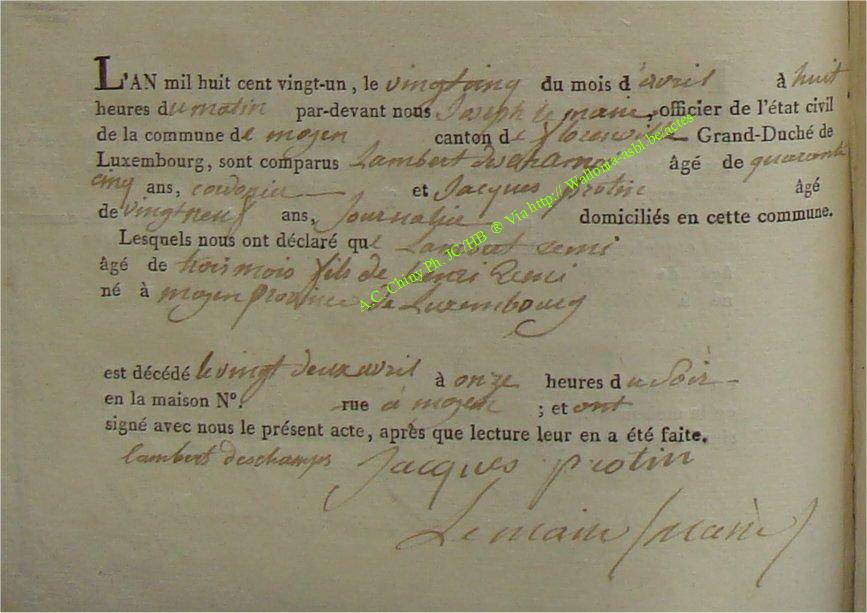 L'AN mil huit cent vingt-un, le vingtcinq du mois d'avril à huit
heures du matin par-devant nous Joseph le maire, officier de l'état civil
de la commune de moyen canton de Grand-Duché de
Luxembourg, sont comparus Lambert deschamps âgé de quarante
cinq ans, cordonier et Jacques protin âgé
de vingtneuf ans, Journalier domiciliés en cette commune.
Lesquels nous ont déclaré que Lambert remi
âgé de trois mois fils de henri Remi
né à moyen province de Luxembourg
est décédé le vingt deux avril à onze heures du soir
en la maison N°. rue à moyen ; et ont
signé avec nous le présent acte, après que lecture leur en a été faite.
lambert deschamps Jacques protin
Lemaire (maire)
A.C. Chiny Ph. JC/HB ® Via http:// Wallonia-asbl-be/actes